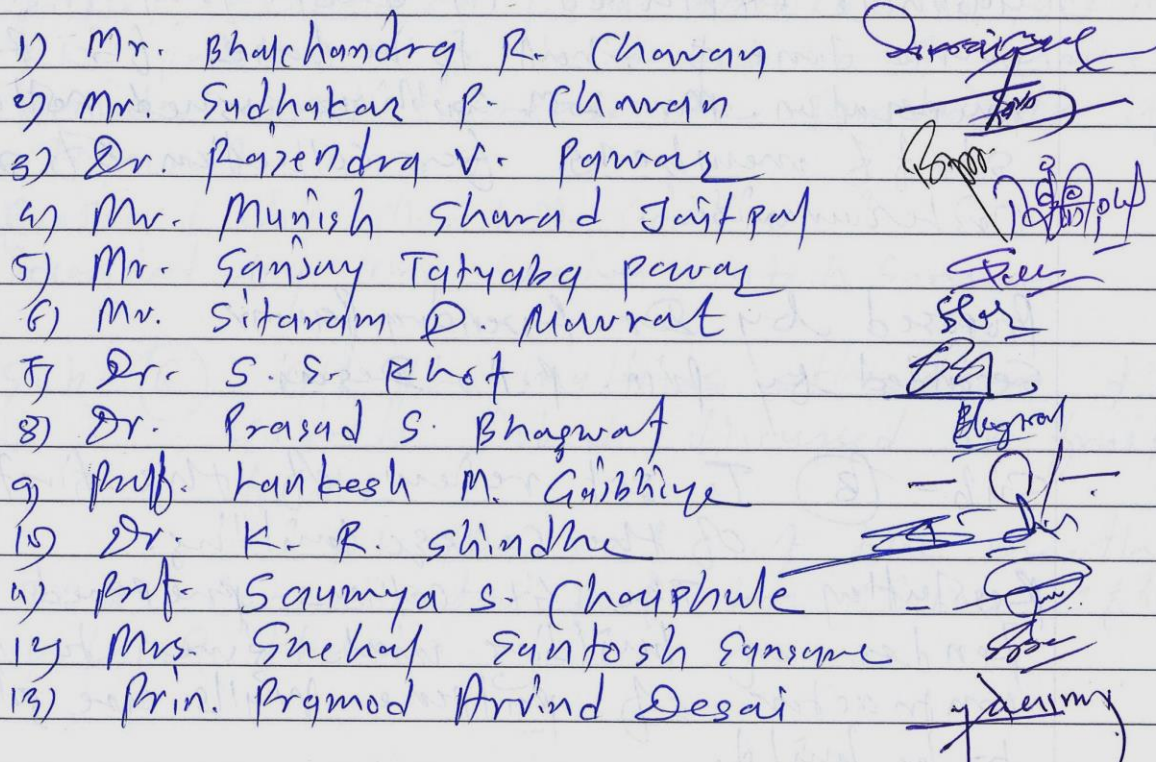 1) Mr. Bhalchandra R. Chavan
2) Mr. Sudhakar P. Chavan
3) Dr. Rajendra V. Pawar
4) Mr. Munish Sharad Jaitpal
5) Mr. Sanjay Tatyaba Pawar
6) Mr. Sitaram D.
7) Dr. S. S. Khot
8) Dr. Prasad S. Bhagwat Bhagwat
9) Prof. Lankesh M. Gajbhiye
10) Dr. K. R. Shindhe
11) Prof. Saumya S. Chouphule
12) Mrs. Snehal Santosh Sansare
13) Prin. Pramod Arvind Desai